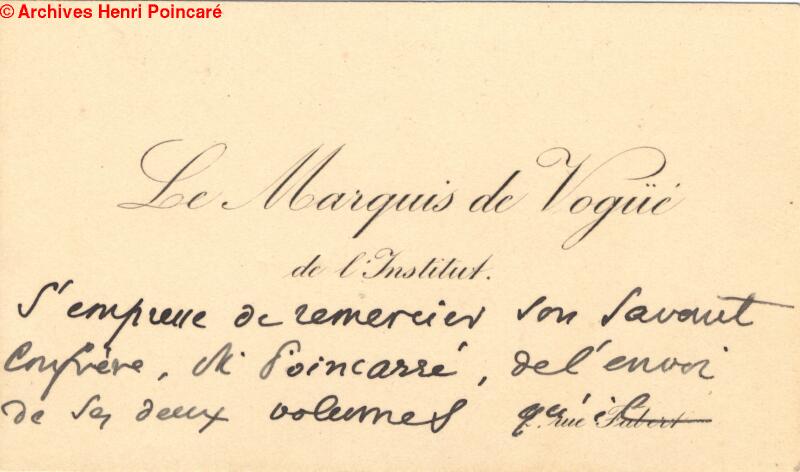 © Archives Henri Poincaré
Le Marquis de Vogüé
de l'Institut.
S'empresse de remercier son savant
Confrère, M. Poincarré, de l'envoi
de ses deux volumes qu'il
rue Fabert